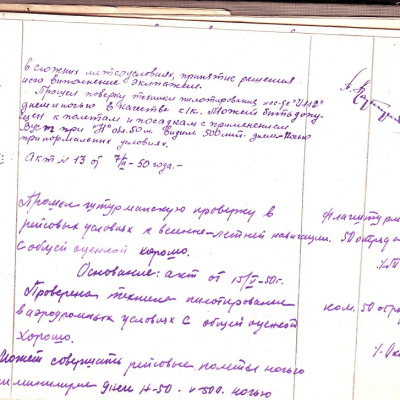 в сложных метеоусловиях, принятие решения
и его выполнение экипажем.
Прошел поверку техники пилотирования на с-те "ИЛ12"
днем и ночью в качестве к/к. Может быть допу-
щен к полетам и посадкам с применением
при "Н" обл. 50 м. Видим. 500 мт. днем и ночью
при нормальных условиях.
Акт № 13 от 7/II-50 года.-
Прошел штурманскую проверку в
рейсовых условиях к весенне-летней навигации.
с общей оценкой хорошо.
Основание: акт от 15/II-50г.
Проверена техника пилотирования
в аэродромных условиях с общей оценкой
хорошо.
Может совершать рейсовые полеты ночью
минимуме днем Н-50. v-500. ночью
флагштурм
50 отряда
ком. 50 отр